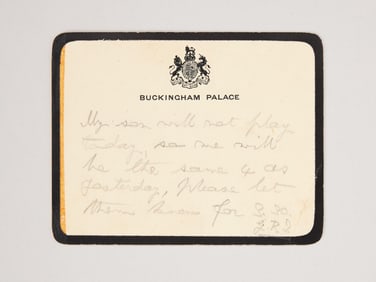 BUCKINGHAM PALACE
My son will not play
today, so we will
be the same 4 as
yesterday, Please let
them know for 2.30.